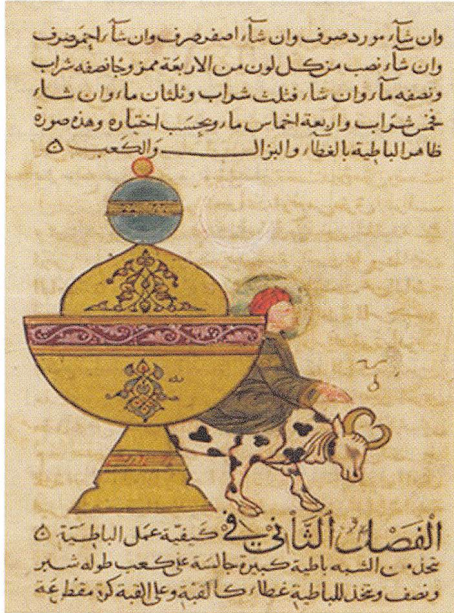 وان شآء مورد صرف وان شآء اصفر صرف وان شآء احمر صرف
وان شآء نصب من كل لون من الاربعة ممزوجا نصفه شراب
ونصفه مآء وان شآء فثلث شراب وثلثان مآء وان شآء
فخمس شراب واربعة اخماس مآء وبحسب اختياره وهذه صورة
ظاهر الباطية بالغطآء والبزال والكعب
الفصل الثاني في كيفية عمل الباطية
تتخذ من الشبه باطية كبيرة جالسة على كعب طوله شبر
ونصف وتتخذ للباطية غطآء كالقبة وعلى القبة كرة مقطعة